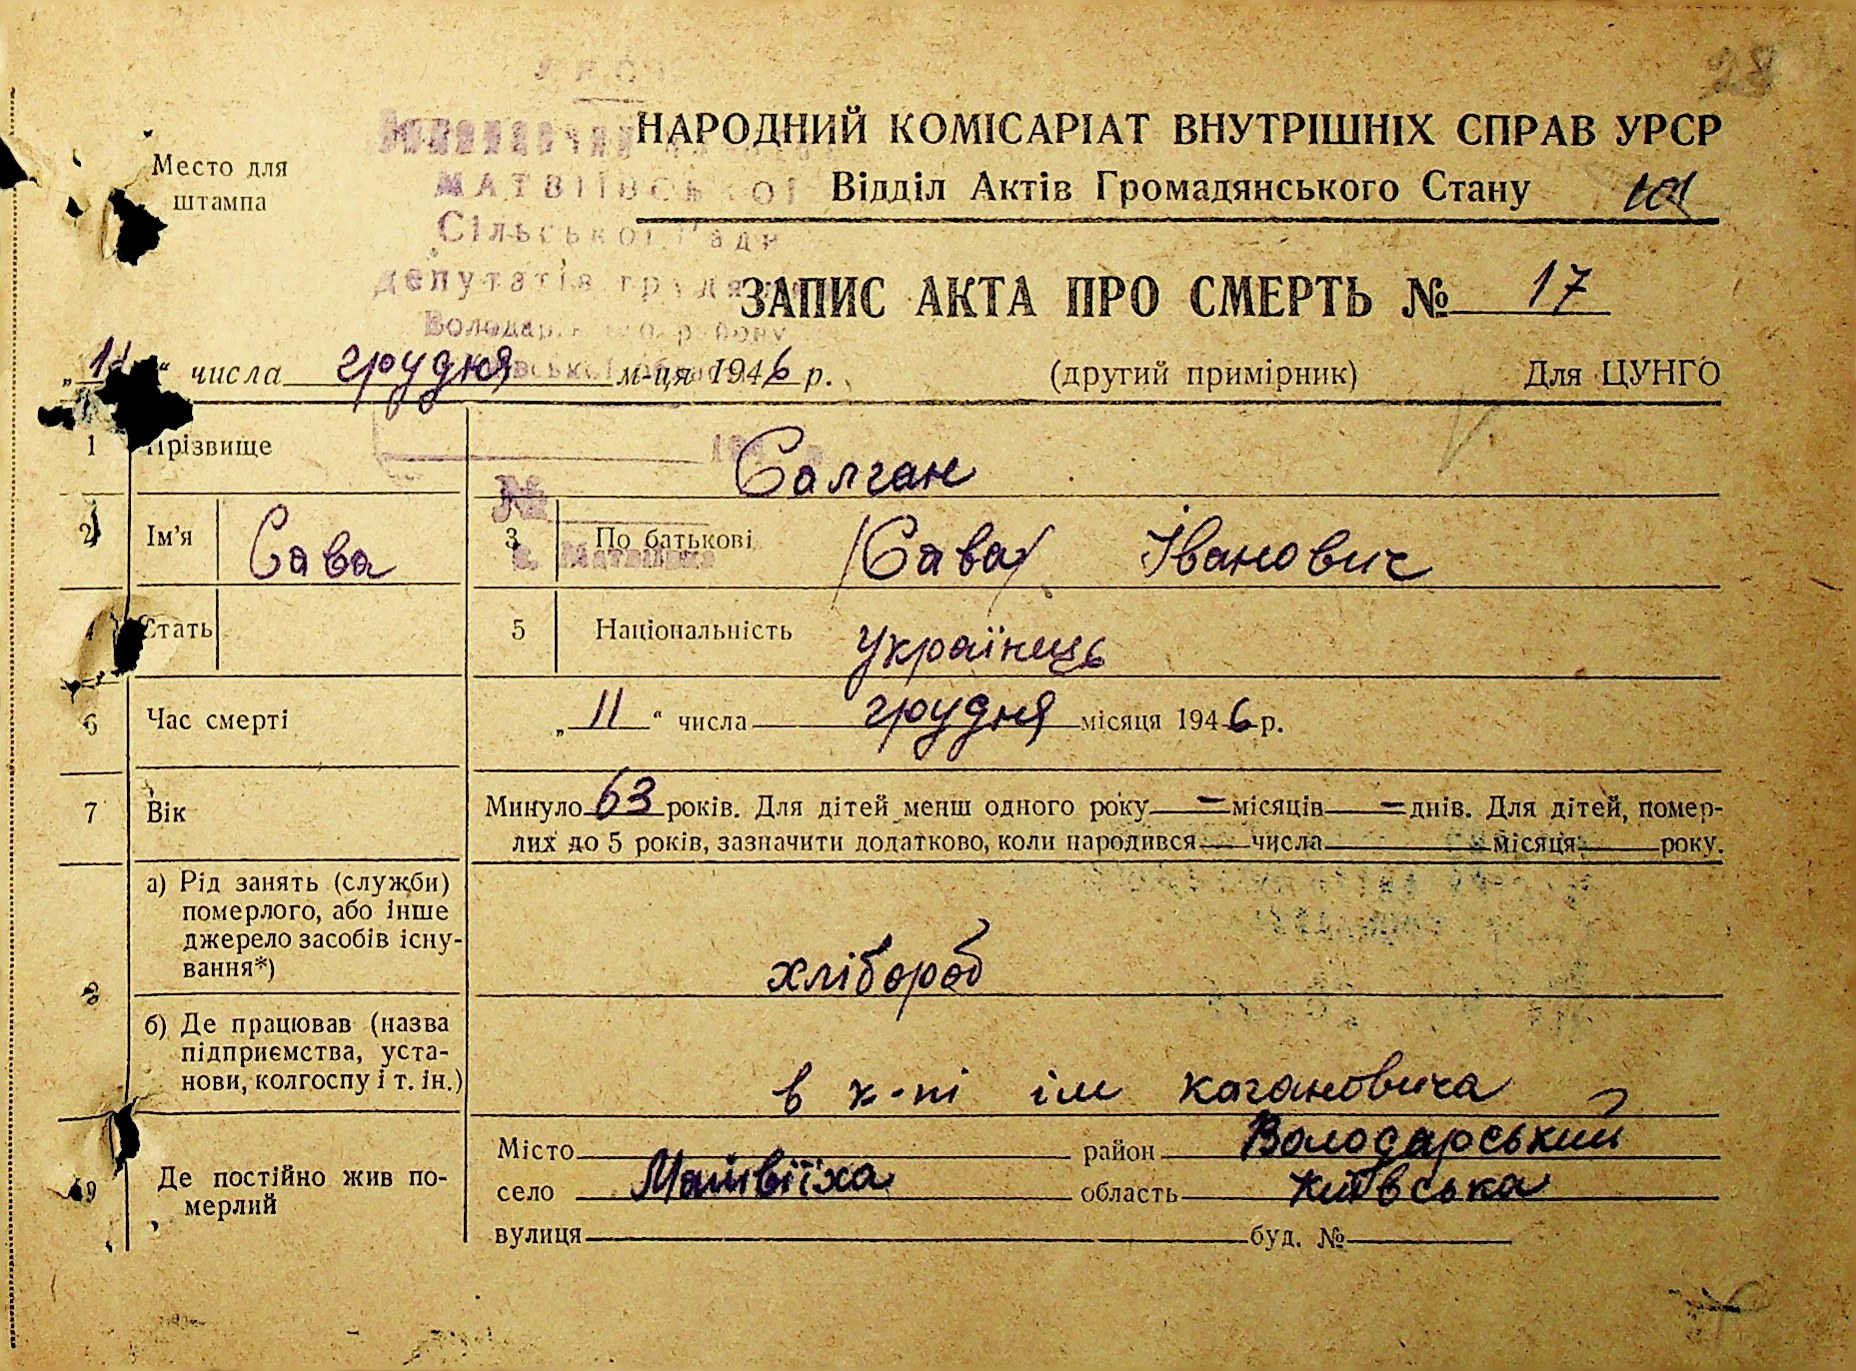 28
НАРОДНИЙ КОМІСАРІАТ ВНУТРІШНІХ СПРАВ УРСР
Место для штампа
МАТВІЇВСЬКОЇ
Відділ Актів Громадянського Стану
Сільської Ради
депутатів
ЗАПИС АКТА ПРО СМЕРТЬ № 17
числа грудня м-ця 1946 р. (другий примірник) Для ЦУНГО
1 Прізвище Салган
№
2 Ім'я Сава 3 По батькові (Сава) Іванович
с. Матвіївка
4 Стать 5 Національність Українець
6 Час смерті „11" числа грудня місяця 1946 р.
7 Вік Минуло 63 років. Для дітей менш одного року — місяців — днів. Для дітей, помер-
лих до 5 років, зазначити додатково, коли народився числа місяця року.
8 а) Рід занять (служби)
померлого, або інше
джерело засобів існу-
вання*) хлібороб
б) Де працював (назва
підприємства, уста-
нови, колгоспу і т. ін.) в к-пі ім кагановича
9 Де постійно жив по-
мерлий
Місто район Володарський
село Матвіїха область Київська
вулиця буд. №